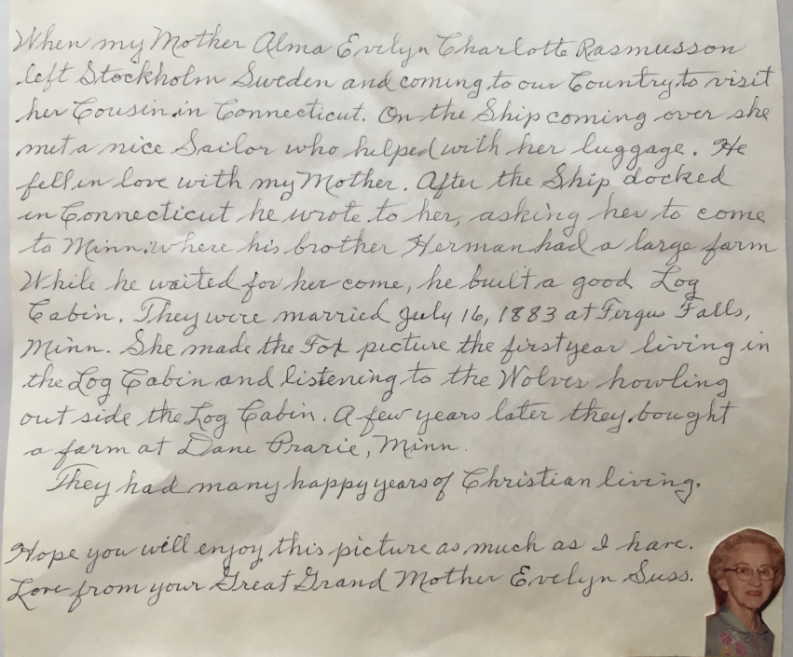 When my Mother Alma Evelyn Charlotte Rasmusson
left Stockholm Sweden and coming to our Country to visit
her Cousin in Connecticut. On the Ship coming over she
met a nice Sailor who helped with her luggage. He
fell in love with my Mother. After the Ship docked
in Connecticut he wrote to her, asking her to come
to Minn. where his brother Herman had a large farm
While he waited for her come, he built a good Log
Cabin. They were married July 16, 1883 at Fergus Falls,
Minn. She made the Fox picture the first year living in
the Log Cabin and listening to the Wolves howling
out side the Log Cabin. A few years later they bought
a farm at Dane Prarie, Minn.
They had many happy years of Christian living.
Hope you will enjoy this picture as much as I have.
Love from your Great Grand Mother Evelyn Suss.